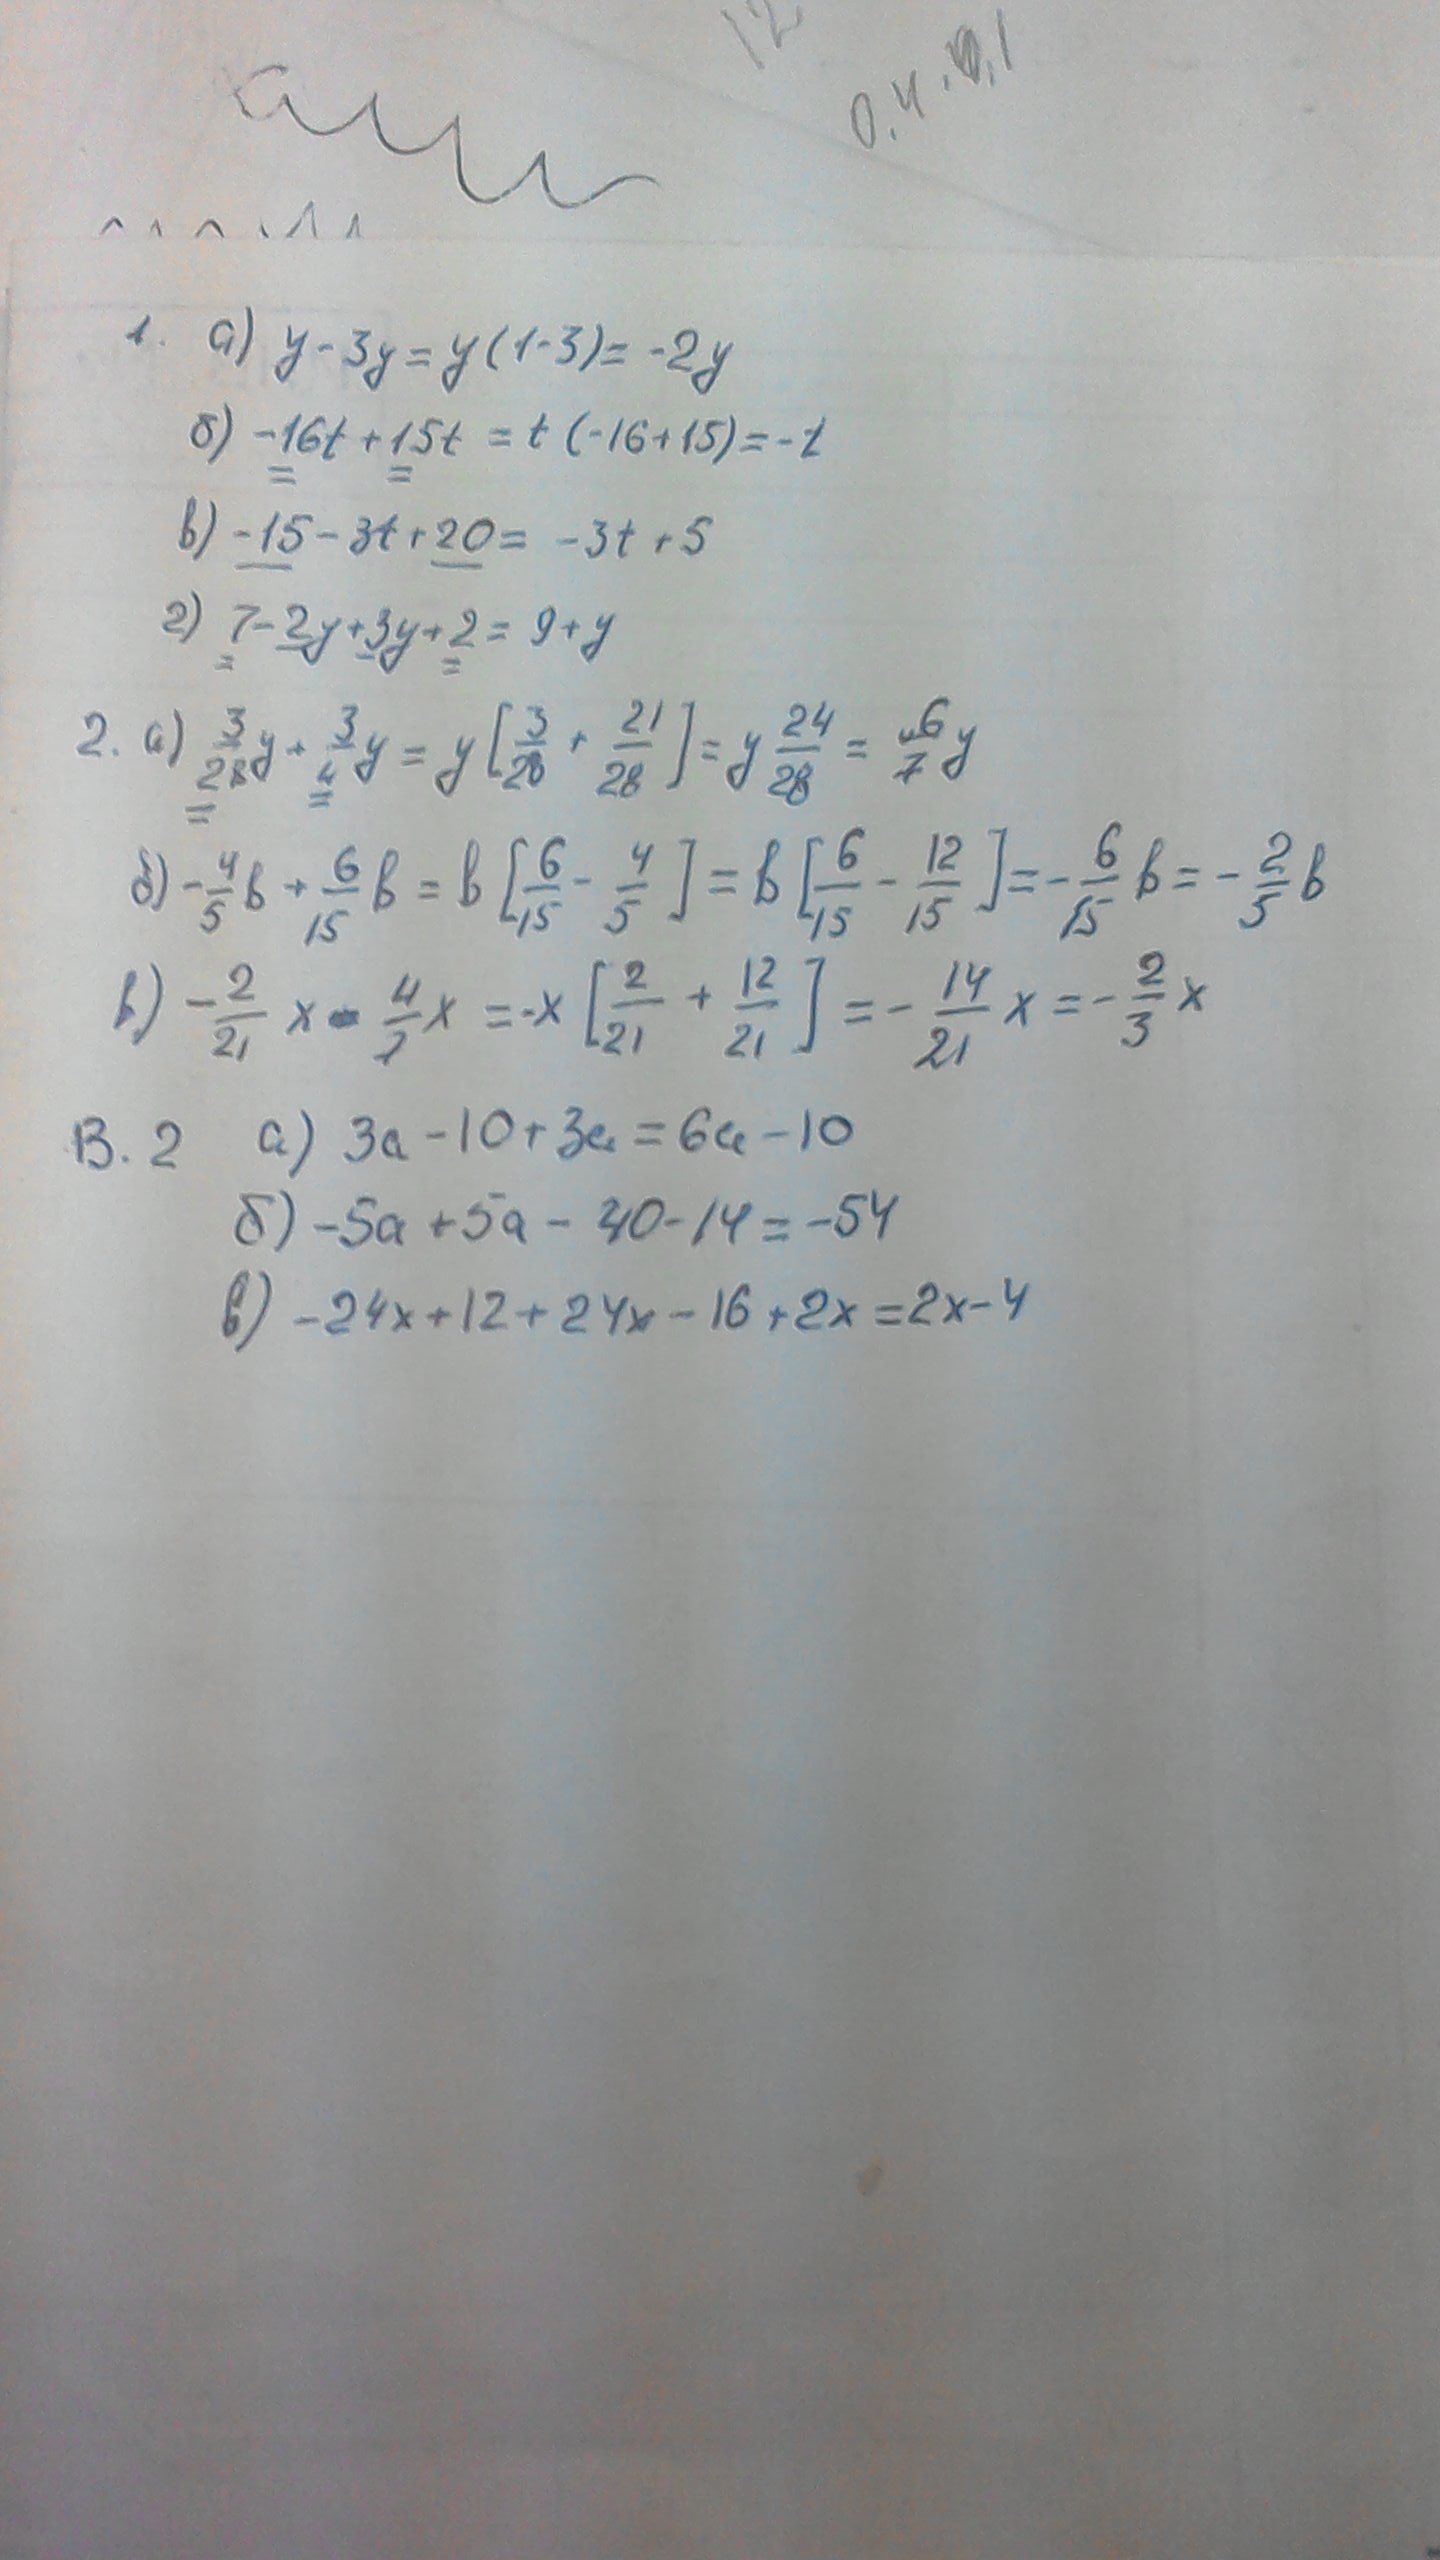 12
0.4.0,1
1. а) y-3y=y(1-3)=-2y
б) -16t+15t=t(-16+15)=-t
в) -15-3t+20=-3t+5
г) 7-2y+3y+2=9+y
2. а) 3/28y+3/4y=y[3/28+21/28]=y24/28=6/7y
б) -4/5b+6/15b=b[6/15-4/5]=b[6/15-12/15]=-6/15b=-2/5b
в) -2/21x-4/7x=-x[2/21+12/21]=-14/21x=-2/3x
В.2 а) 3a-10+3a=6a-10
б) -5a+5a-40-14=-54
в) -24x+12+24x-16+2x=2x-4